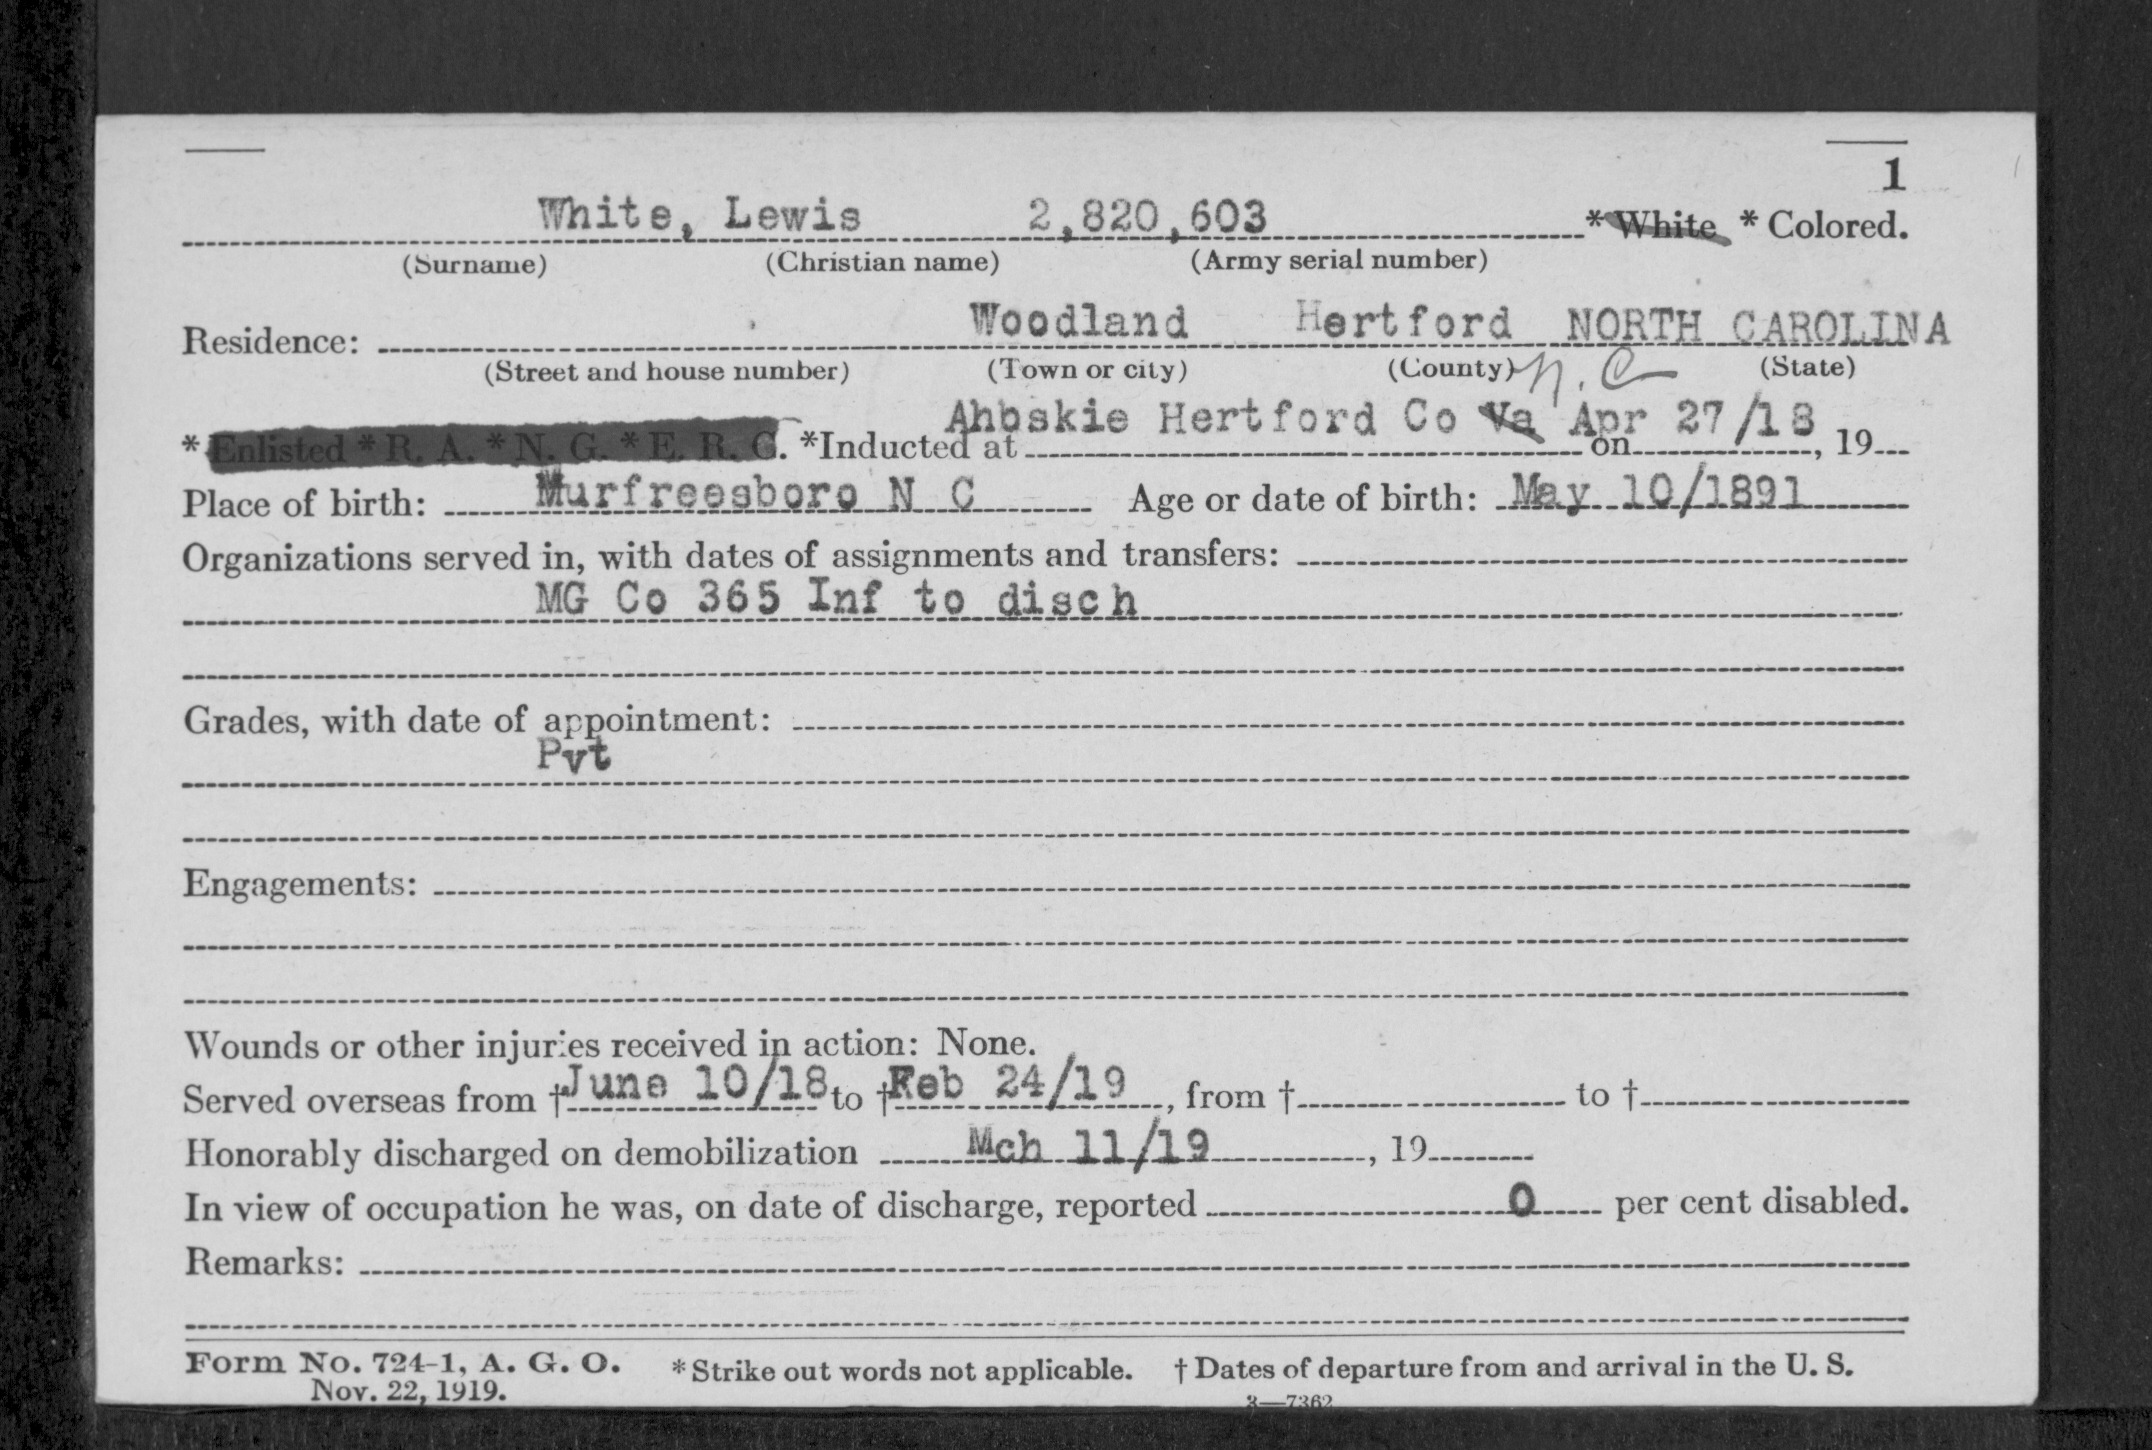 1
White, Lewis 2,820,603 * White * Colored.
(Surname) (Christian name) (Army serial number)
Woodland Hertford NORTH CAROLINA
Residence:
(Street and house number) (Town or city) (County) (State)
N. C
Ahoskie Hertford Co Va Apr 27/18
* Enlisted * R. A. * N. G. * E. R. C. *Inducted at on , 19
Place of birth: Murfreesboro N C Age or date of birth: May 10/1891
Organizations served in, with dates of assignments and transfers:
MG Co 365 Inf to disch
Grades, with date of appointment:
Pvt
Engagements:
Wounds or other injuries received in action: None.
Served overseas from † June 10/18 to † Feb 24/19, from † to †
Honorably discharged on demobilization Mch 11/19, 19
In view of occupation he was, on date of discharge, reported 0 per cent disabled.
Remarks:
Form No. 724-1, A. G. O. * Strike out words not applicable. † Dates of departure from and arrival in the U. S.
Nov. 22, 1919. 3—7362